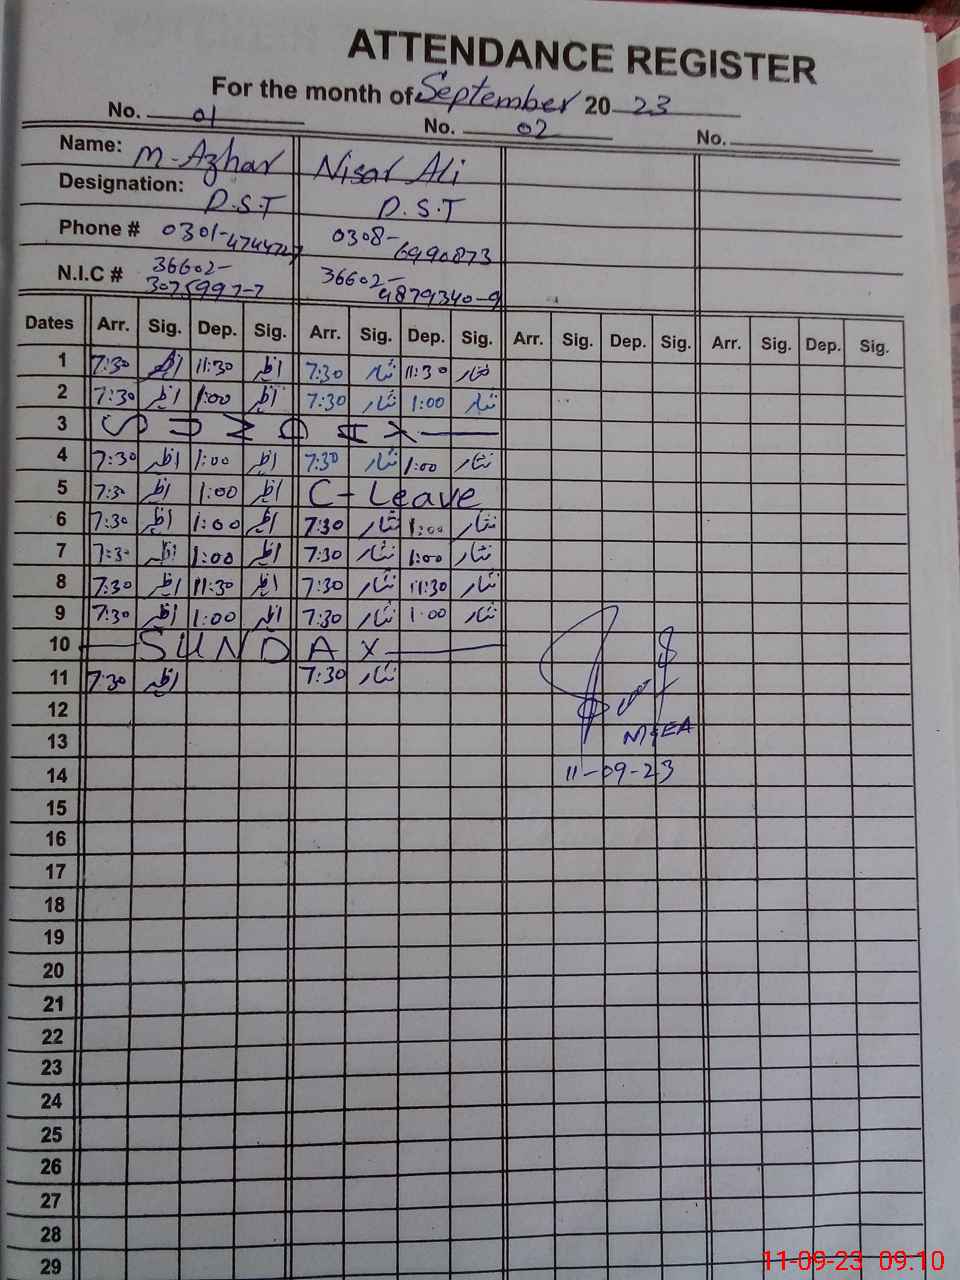 ATTENDANCE REGISTER
For the month of September 20 23
No. 01 No. 02 No.
Name: M-Azhar Nisar Ali
Designation: P.S.T P.S.T
Phone # 0301-4744727 0308-6990873
N.I.C # 36602-3075997-7 36602-4879340-9
Dates Arr. Sig. Dep. Sig. Arr. Sig. Dep. Sig. Arr. Sig. Dep. Sig. Arr. Sig. Dep. Sig.
1 7:30 اظہر 11:30 اظہر 7:30 نثار 11:30 نثار
2 7:30 اظہر 1:00 اظہر 7:30 نثار 1:00 نثار
3 SUNDAY
4 7:30 اظہر 1:00 اظہر 7:30 نثار 1:00 نثار
5 7:30 اظہر 1:00 اظہر C-Leave
6 7:30 اظہر 1:00 اظہر 7:30 نثار 1:00 نثار
7 7:30 اظہر 1:00 اظہر 7:30 نثار 1:00 نثار
8 7:30 اظہر 11:30 اظہر 7:30 نثار 11:30 نثار
9 7:30 اظہر 1:00 اظہر 7:30 نثار 1:00 نثار
10 SUNDAY
11 7:30 اظہر 7:30 نثار
12
13 MEA
14 11-09-23
15
16
17
18
19
20
21
22
23
24
25
26
27
28
29
11-09-23 09.10